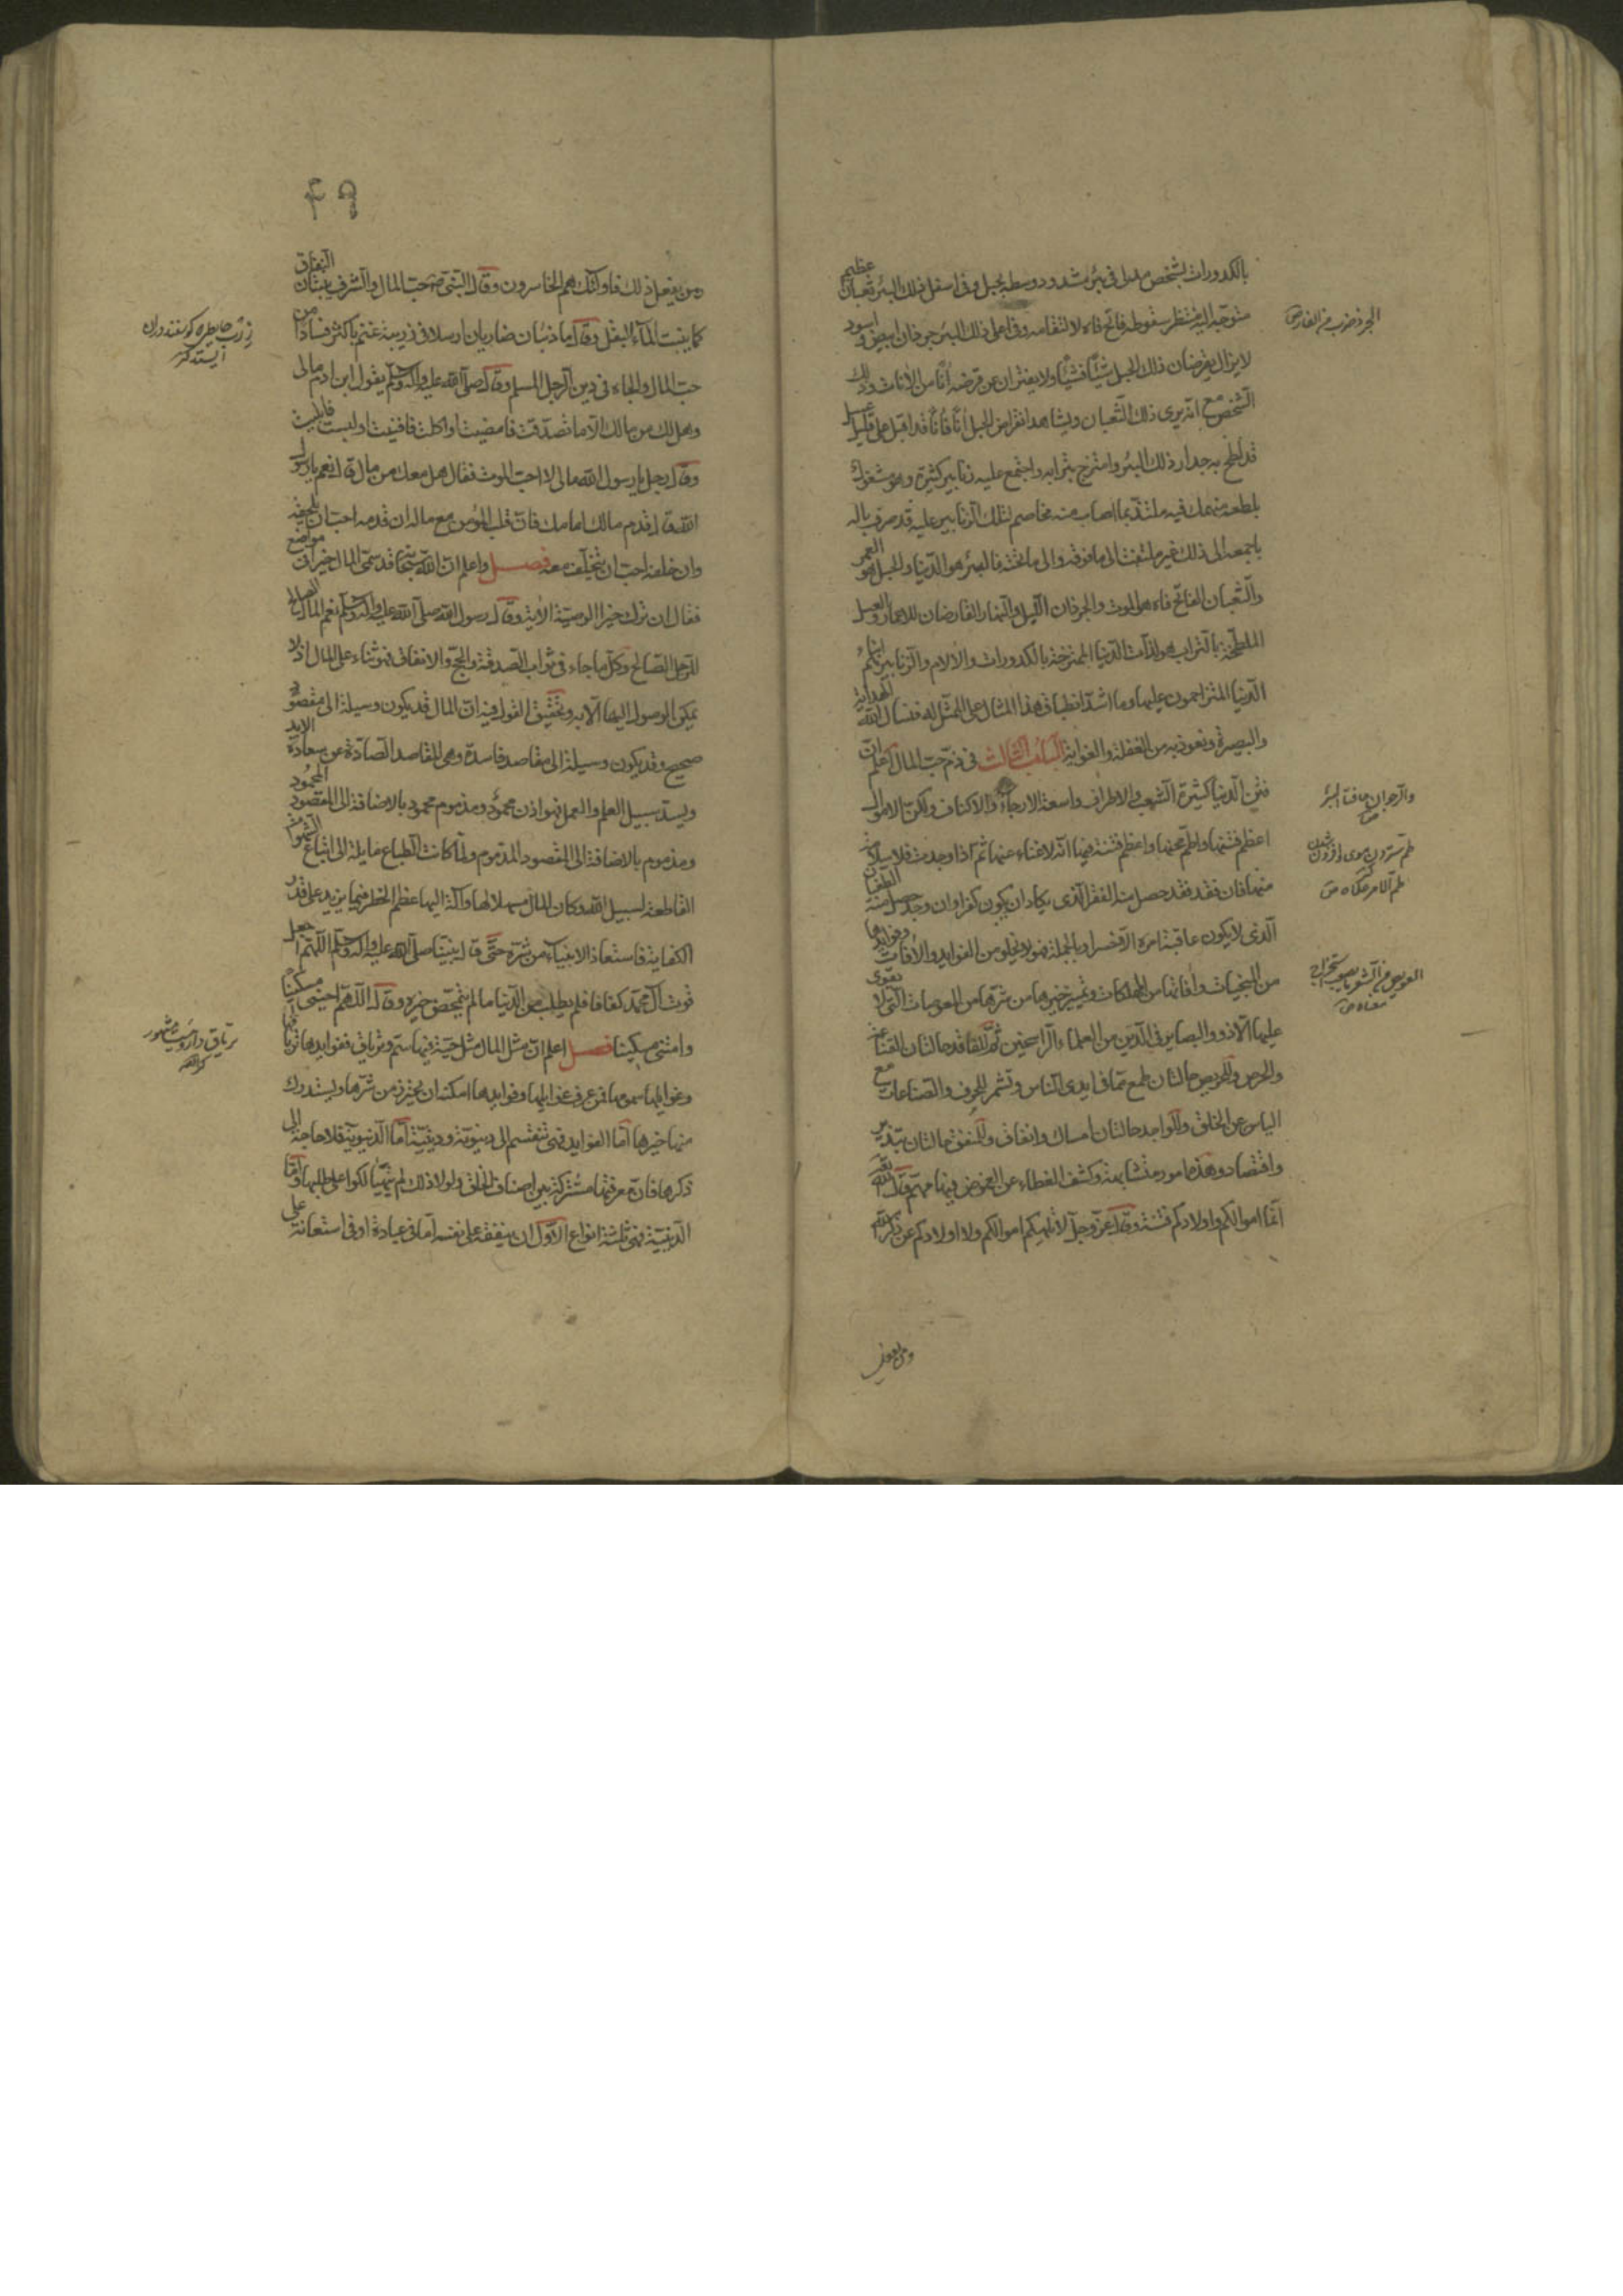 بالكدورات بشخص مدلى فى بئر مشدود وسطه بحبل وفى اسفل ذلك البئر ثعبان عظيم
متوجّه اليه منتظر سقوطه فاتح فاه لالتقامه وفى اعلى ذلك البئر جرذان ابيض واسود
لا يزال يقرضان ذلك الحبل شيئًا فشيئًا ولا يفتران عن قرضه انًا من الانات وذلك
الشخص مع انّه يرى ذلك الثّعبان ويشاهد انقراض الحبل انًا فانًا قد اقبل على قليل عسل
قد لطخ به جدار ذلك البئر وامتزج بترابه واجتمع عليه زنابير كثيرة وهو مشغول
بلطعه منهمك فيه ملتذّ بما اصاب منه مخاصم لتلك الزنابير عليه قد صرف باله
باجمعه الى ذلك غير ملتفت الى ما فوقه والى ما تحته فالبئر هو الدّنيا والحبل هو العمر
والثّعبان الفاتح فاه هو الموت والجرذان اللّيل والنّهار القارضان للاعمار والعسل
المطخّ بالتّراب هو لذّات الدّنيا الممتزجة بالكدورات والالام والزنابير هم ابناء
الدّنيا المتزاحمون عليها وما اشدّ انطباق هذا المثال على الممثّل له فنسال اللّه الهداية
والبصيرة ونعوذ به من الغفلة والغواية الباب الثالث فى ذمّ حبّ المال اعلم انّ
فتن الدّنيا كثيرة الشّعب والاطراف واسعة الارجاء والاكناف ولكنّ الاموال
اعظم فتنها واطمّ محنها واعظم فتنة فيها انّه لاغناء عنها ثمّ اذا وجدت فلا سلامة
منها فان فقد فقد حصل منه الفقر الّذى يكاد ان يكون كفرا وان وجد حصل منه الطغيان
الّذى لا يكون عاقبة امره الّا خسرا وبالجملة فهو لا يخلو من الفوايد والآفات وفوايدها
من المنجيات وآفاتها من المهلكات وتمييز خيرها من شرّها من المعوصات الّتى لا يقوى
عليها الّا ذوو البصاير فى الدّين من العلماء الرّاسخين ثمّ للفاقد حالتان القناعة
والحرص وللحريص حالتان طمع بما فى ايدى النّاس وتشمر للحرف والصّناعات مع
الياس عن الخلق وللواجد حالتان امساك وانفاق وللمنفق حالتان تبذير
واقتصاد وهذه امور متشابهة وكشف الغطاء عن الغموض فيها مهمّ قال اللّه تعالى
انّما اموالكم واولادكم فتنة وقال عزّ وجلّ لا تلهيكم اموالكم ولا اولادكم عن ذكر اللّه
الجرذ ضرب من الفار ص
والرّجوان حافتا البئر ص
طم الامر
العويص من الشّعر ما يصعب استخراج
معناه ص
ومن يفعل
٤٩
ومن يفعل ذلك فاولئك هم الخاسرون وقال النّبىّ ص حبّ المال والشّرف ينبتان النفاق
كما ينبت الماء البقل وقال ما ذئبان ضاريان ارسلا فى زريبة غنم باكثر فسادا من
حبّ المال والجاه فى دين الرّجل المسلم وقال صلّى اللّه عليه واله وسلم يقول ابن ادم مالى مالى
وهل لك من مالك الّا ما تصدّقت فامضيت او اكلت فافنيت او لبست فابليت
وقال رجل يا رسول اللّه مالى لا احبّ الموت فقال هل معك من مال قال نعم يا رسول
اللّه قال قدم مالك امامك فانّ قلب المؤمن مع ماله ان قدمه احبّ ان يلحقه
وان خلفه احبّ ان يتخلّف معه فصل واعلم انّ اللّه سبحانه قد سمّى المال خيرا فى مواضع
فقال ان ترك خيرا الوصيّة الآية وقال رسول اللّه صلّى اللّه عليه واله وسلم نعم المال الصالح
للرّجل الصّالح وكلّ ما جاء فى ثواب الصّدقة والحجّ والانفاق فهو ثناء على المال اذ لا
يمكن الوصول اليها الّا به وتحقيق القول فيه انّ المال قد يكون وسيلة الى مقصود
صحيح وقد يكون وسيلة الى مقاصد فاسدة وهى المقاصد الصّادّة عن سعادة الابد
ويسدّ سبيل العلم والعمل فهو اذن محمود ومذموم محمود بالاضافة الى المقصود المحمود
ومذموم بالاضافة الى المقصود المذموم ولمّا كانت الطّباع مايلة الى اتباع الشّهوات
القاطعة لسبيل اللّه وكان المال مسهلا لها وآلة اليها عظم الخطر فيما يزيد على قدر
الكفاية فاستعاذ الانبياء من شرّه حتّى قال نبيّنا صلّى اللّه عليه واله وسلم اللّهمّ اجعل
قوت آل محمّد كفافا فلم يطلب من الدّنيا ما لم يتمحّض خيره وقال اللّهمّ احينى مسكينًا
وامتنى مسكينا فصل اعلم انّ مثل المال مثل حيّة فيها سمّ وترياق ففوايدها ترياقها
وغوايلها سمومها فمن عرف غوايلها وفوايدها امكنه ان يحترز من شرّها ويستدرك
منها خيرها امّا الفوايد فهى تنقسم الى دينويّة ودينيّة امّا الدّنيويّة فلا حاجة الى
ذكرها فانّ معرفتها مشتركة بين اصناف الخلق ولولا ذلك لم يتهالكوا على طلبها وامّا
الدّينيّة فهى ثلثة انواع الاوّل ان ينفقه على نفسه امّا فى عبادة او فى استعانة على